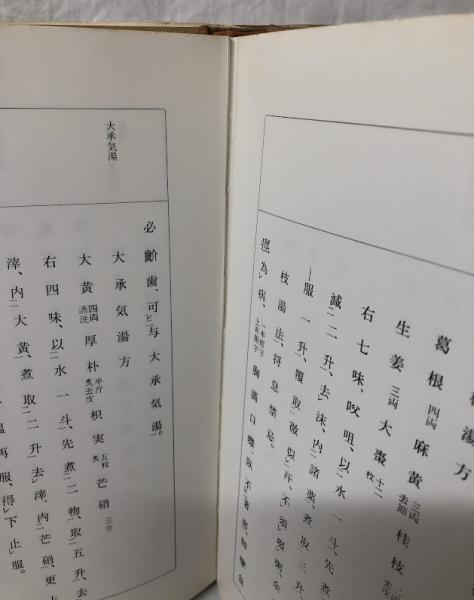 根湯方
葛根 四両 麻黄 三両去節 桂枝
生姜 三両 大棗 十二枚
右七味、㕮咀、以水一斗、先煮
減二升、去沫、内諸薬、煮取三升、
服一升、覆取微似汗、不須啜粥、余
枝湯法、将息禁忌。
痙為病、 本痙字上有剛字 胸満口噤、臥不著席、脚攣急
大承気湯
必齘歯、可与大承気湯。
大承気湯方
大黄 四両酒洗 厚朴 半斤炙去皮 枳実 五枚炙 芒硝 三合
右四味、以水一斗、先煮二物、取五升、去
滓、内大黄、煮取二升、去滓、内芒硝、更上
再服、得下止服。